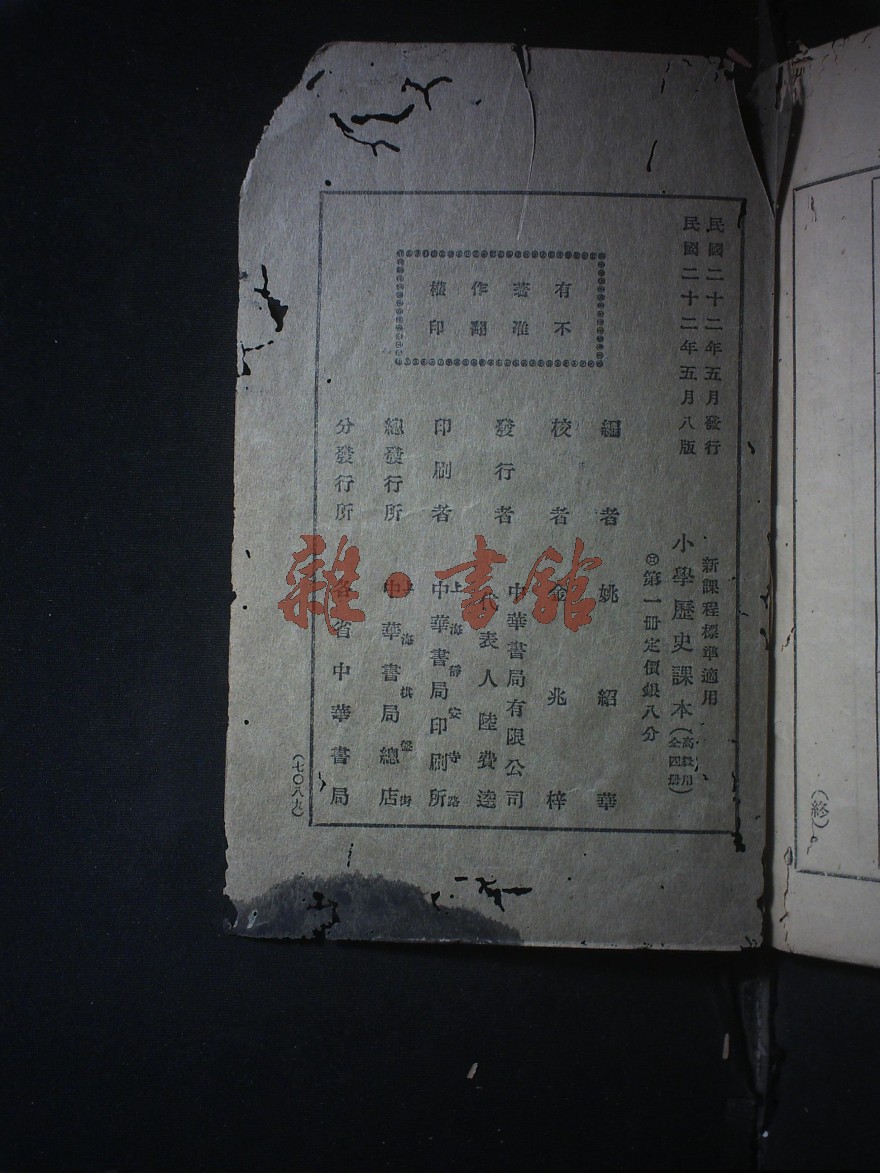 民國二十二年五月發行
民國二十二年五月八版
新課程標準適用
小學歷史課本(高級用全四冊)
第一冊定價銀八分
有著作權
不准翻印
編者 姚紹華
校者 金兆梓
發行者 中華書局有限公司
代表人 陸費逵
印刷者 上海靜安寺路
中華書局印刷所
總發行所 上海棋盤街
中華書局總店
分發行所 各省中華書局
(七〇八九)
(終)
雜·書館